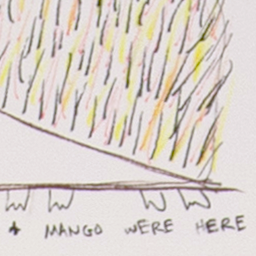 & MANGO WERE HERE